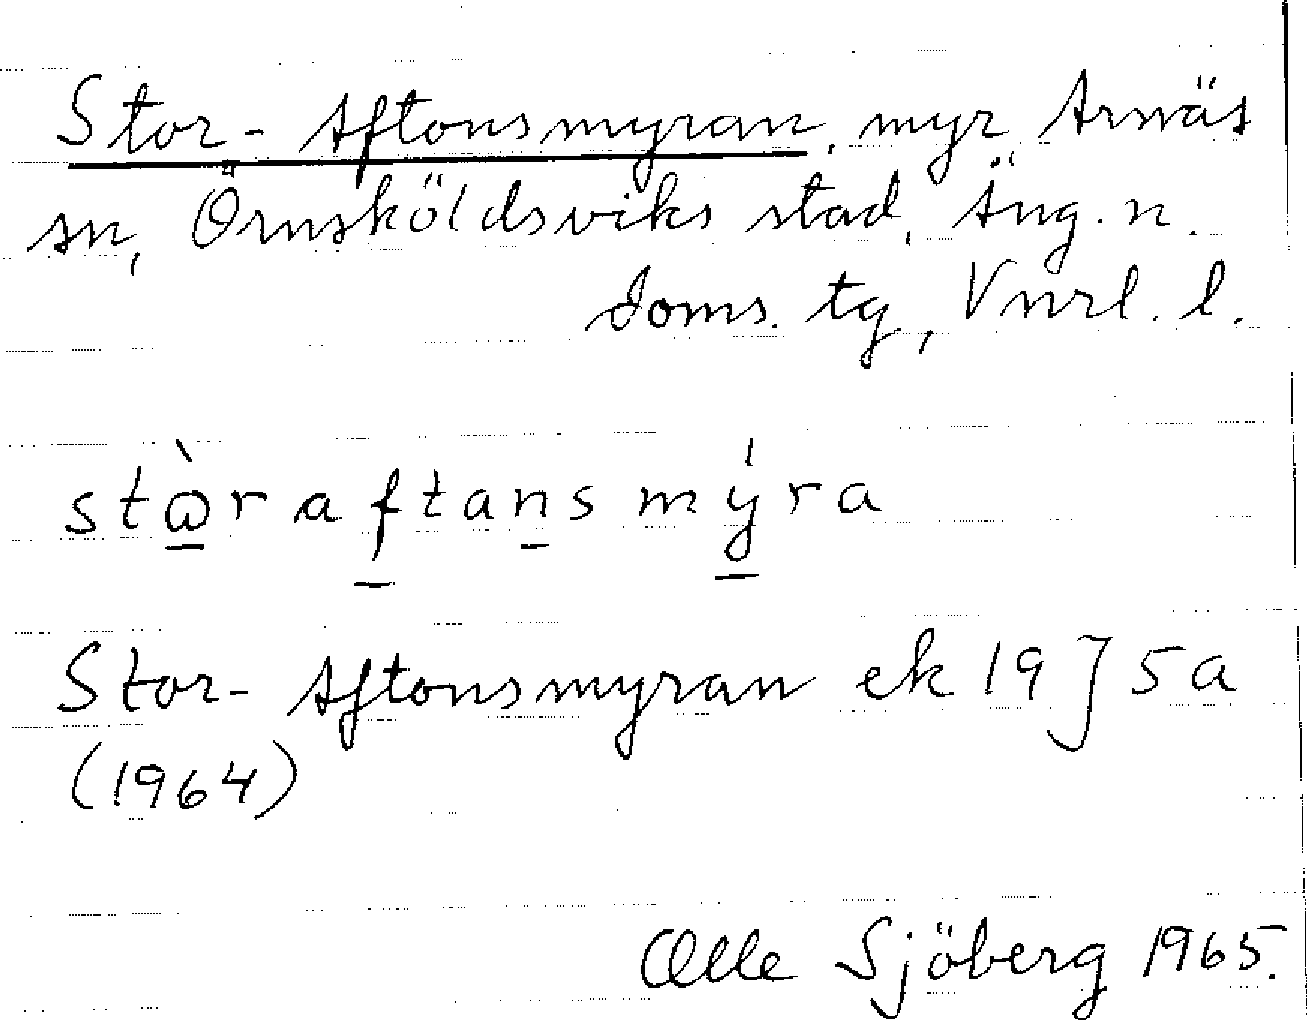 Stor-Aftonsmyran, myr, Arnäs
sn, Örnsköldsviks stad, Äng. n.
doms. tg, Vnrl. l.
stὼr aftans mýra
Stor-Aftonsmyran ek 19 J 5 a
(1964)
Olle Sjöberg 1965.